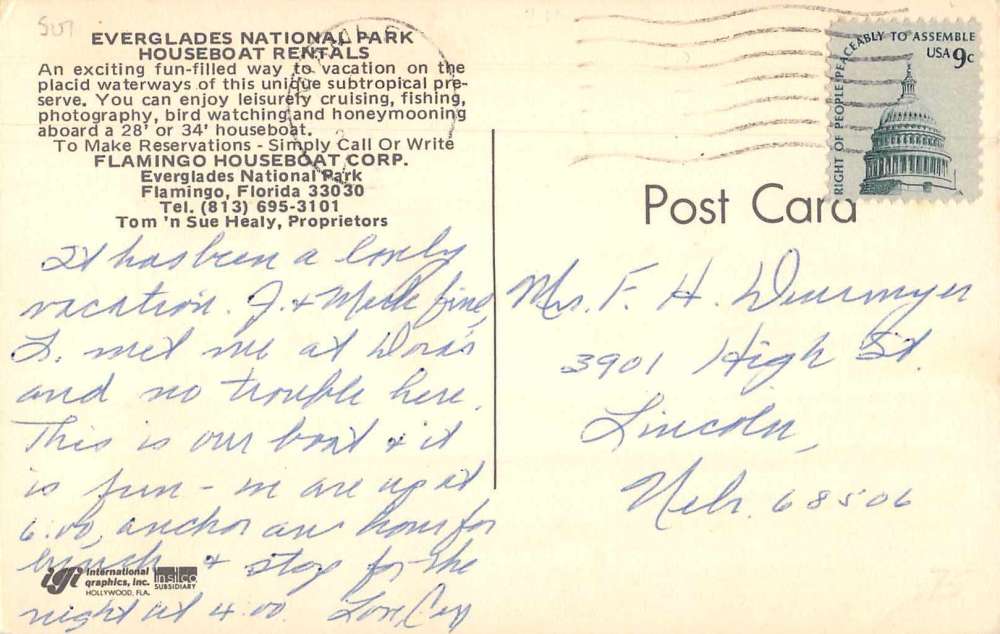 507
EVERGLADES NATIONAL PARK
HOUSEBOAT RENTALS
An exciting fun-filled way to vacation on the
placid waterways of this unique subtropical pre-
serve. You can enjoy leisurely cruising, fishing,
photography, bird watching and honeymooning
aboard a 28' or 34' houseboat.
To Make Reservations - Simply Call Or Write
FLAMINGO HOUSEBOAT CORP.
Everglades National Park
Flamingo, Florida 33030
Tel. (813) 695-3101
Tom 'n Sue Healy, Proprietors
It has been a lovely
vacation. J. + fine,
L. met me at Dora's
and no trouble here.
This is our boat + it
is fun - we are up at
6:00, anchor an hour for
lunch + stop for the
night at 4:00. Love,
igi International
graphics, inc.
HOLLYWOOD, FLA.
insilco
SUBSIDIARY
RIGHT OF PEOPLE PEACEABLY TO ASSEMBLE
USA 9c
Post Card
Mrs. F. H. Deurmyer
3901 High St.
Lincoln,
Nebr. 68506